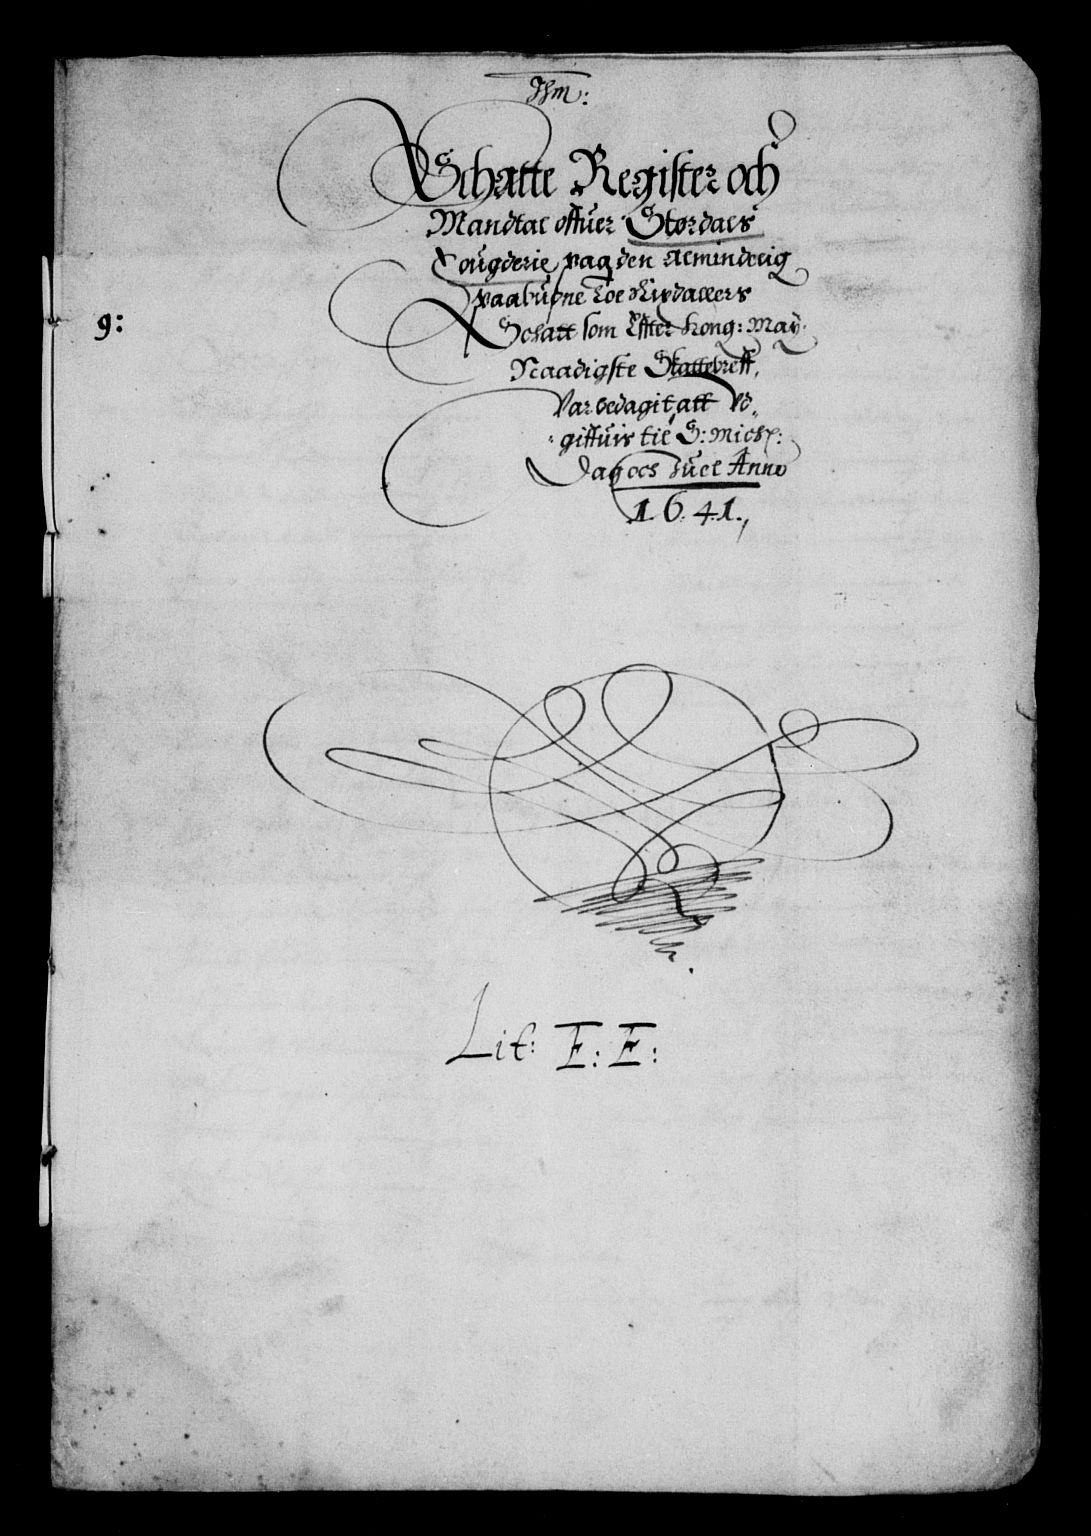 Ihm:
Schatte Register och
Mandtal offuer Størdals
Fougderie paa den Almindelig
paabudne toe Rixdallers
Schatt som Effter Kong: May:
9:
Naadigste Skattebreff,
Var bedagit att Vd„
„giffuis til S: Mich:
Dag ocs Juel Anno
1.6.4.1.,
Lit: E: E: